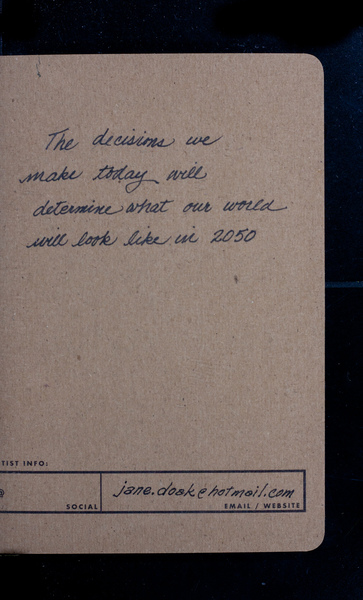 The decisions we
make today will
determine what our world
will look like in 2050
TIST INFO:
@
SOCIAL
jane.doak@hotmail.com
EMAIL / WEBSITE